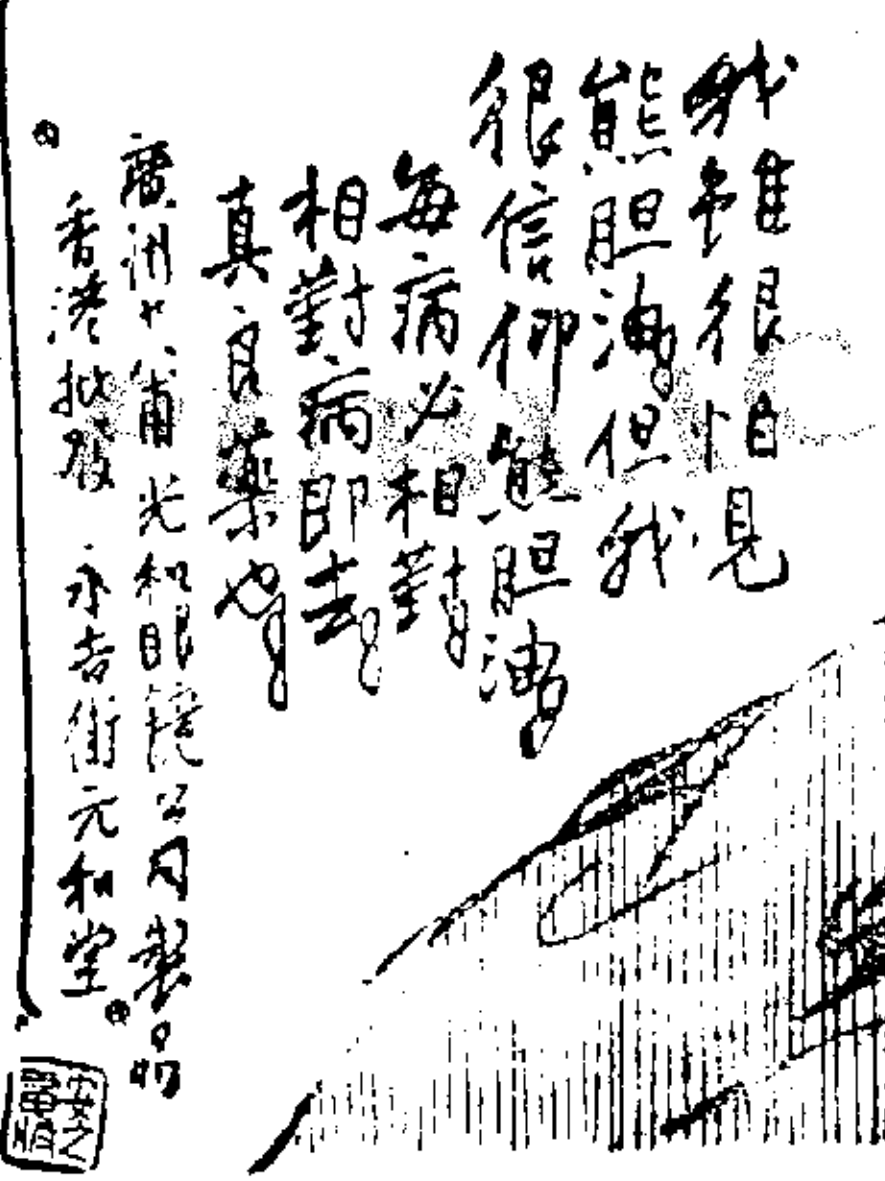 我雖很怕見
熊胆油但我
很信仰熊胆油
每病必相對
相對病即去
真良藥也
廣州十八甫光和眼鏡公司製品
香港批發 永吉街元和堂